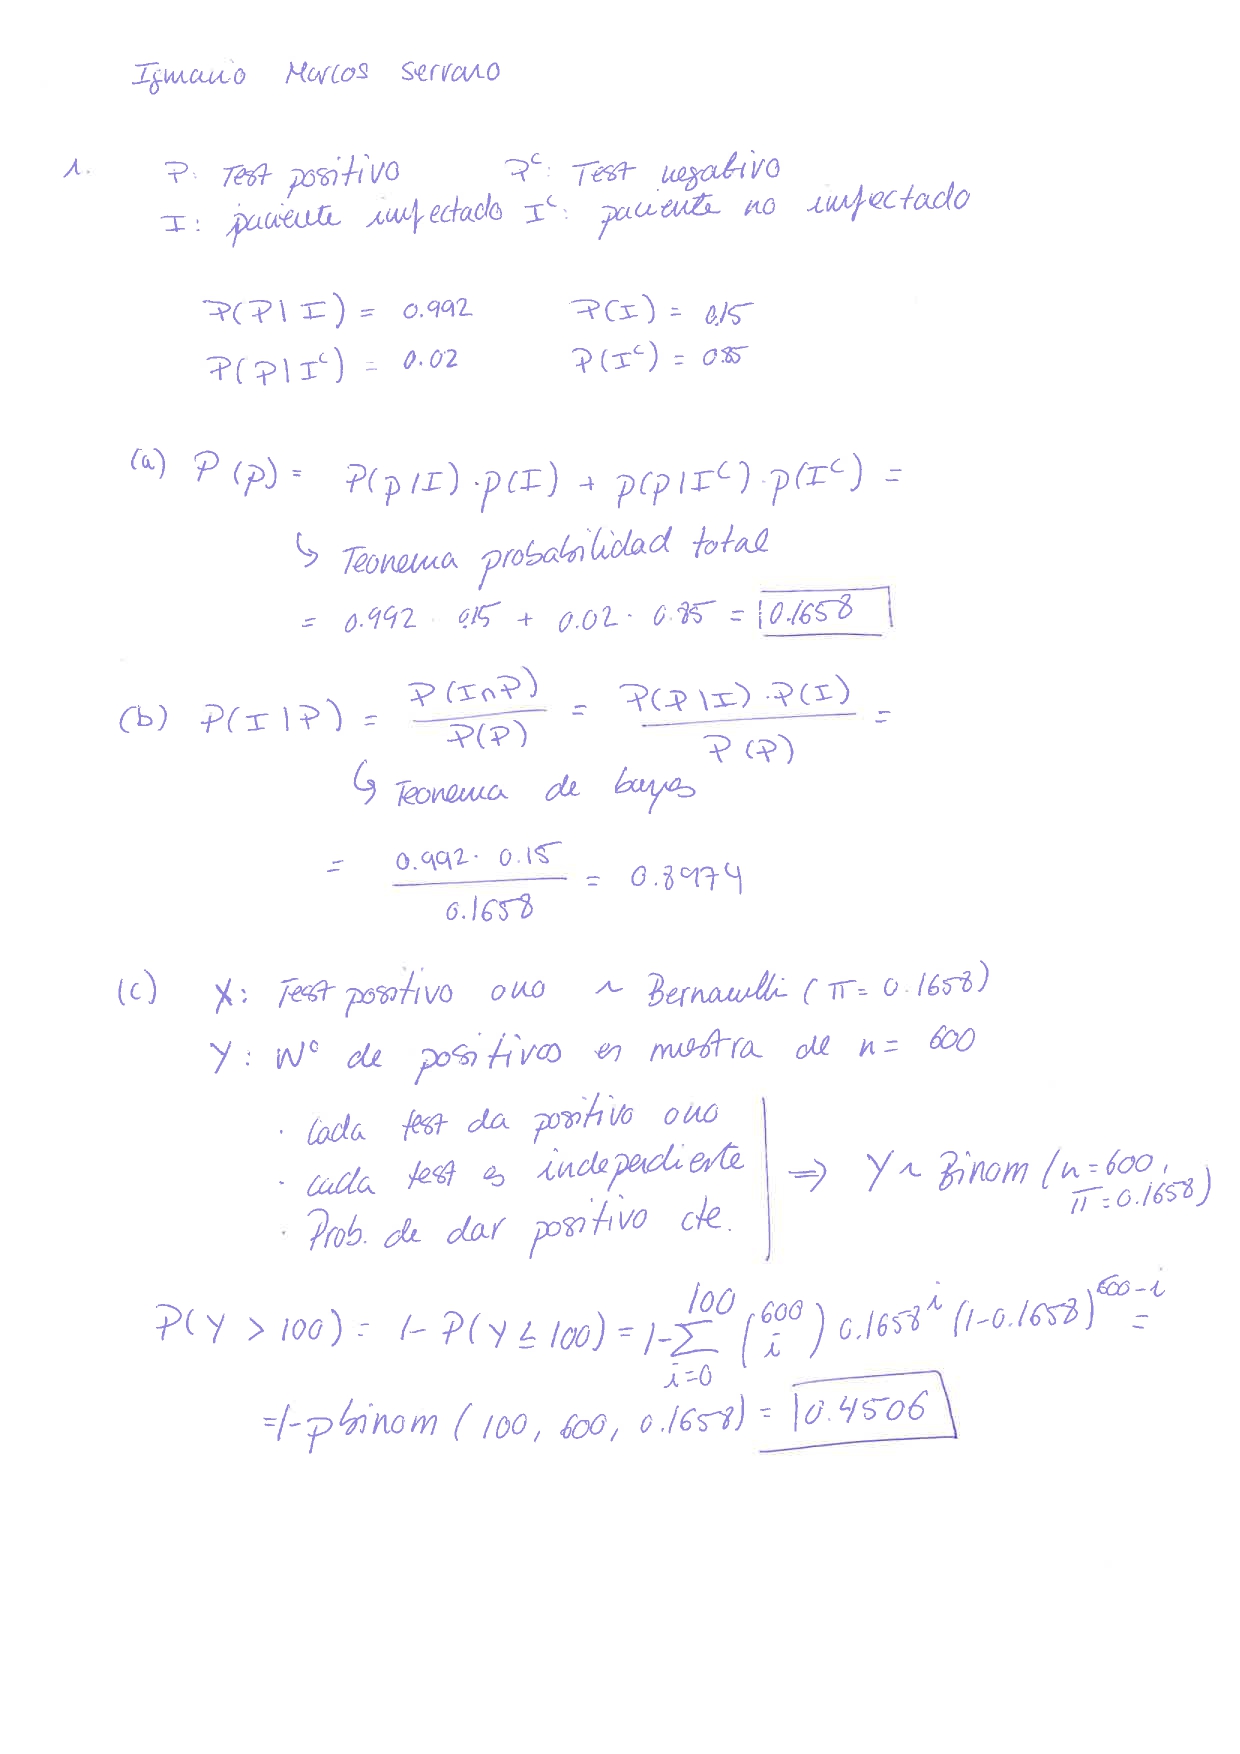 Ignacio Marcos Serrano
1. P: Test positivo P^c: Test negativo
I: paciente infectado I^c: paciente no infectado
P(P|I) = 0.992 P(I) = 0.15
P(P|I^c) = 0.02 P(I^c) = 0.85
(a) P(p) = P(p/I)·p(I) + p(p/I^c)·p(I^c) =
↳ Teorema probabilidad total
= 0.992 · 0.15 + 0.02 · 0.85 = 0.1658
(b) P(I|P) = P(I∩P)/P(P) = P(P\I)·P(I)/P(P) =
↳ Teorema de bayes
= 0.992 · 0.15/0.1658 = 0.8974
(c) X: Test positivo o no ~ Bernoulli (π = 0.1658)
Y: Nº de positivos en muestra de n = 600
· Cada test da positivo o no
· cada test es independiente ⇒ Y ~ Binom (n = 600, π = 0.1658)
· Prob. de dar positivo cte.
P(Y > 100) = 1 - P(Y ≤ 100) = 1 - ∑_{i=0}^{100} (600 i) 0.1658^i (1-0.1658)^{600-i} =
= 1 - pbinom (100, 600, 0.1658) = 0.4506